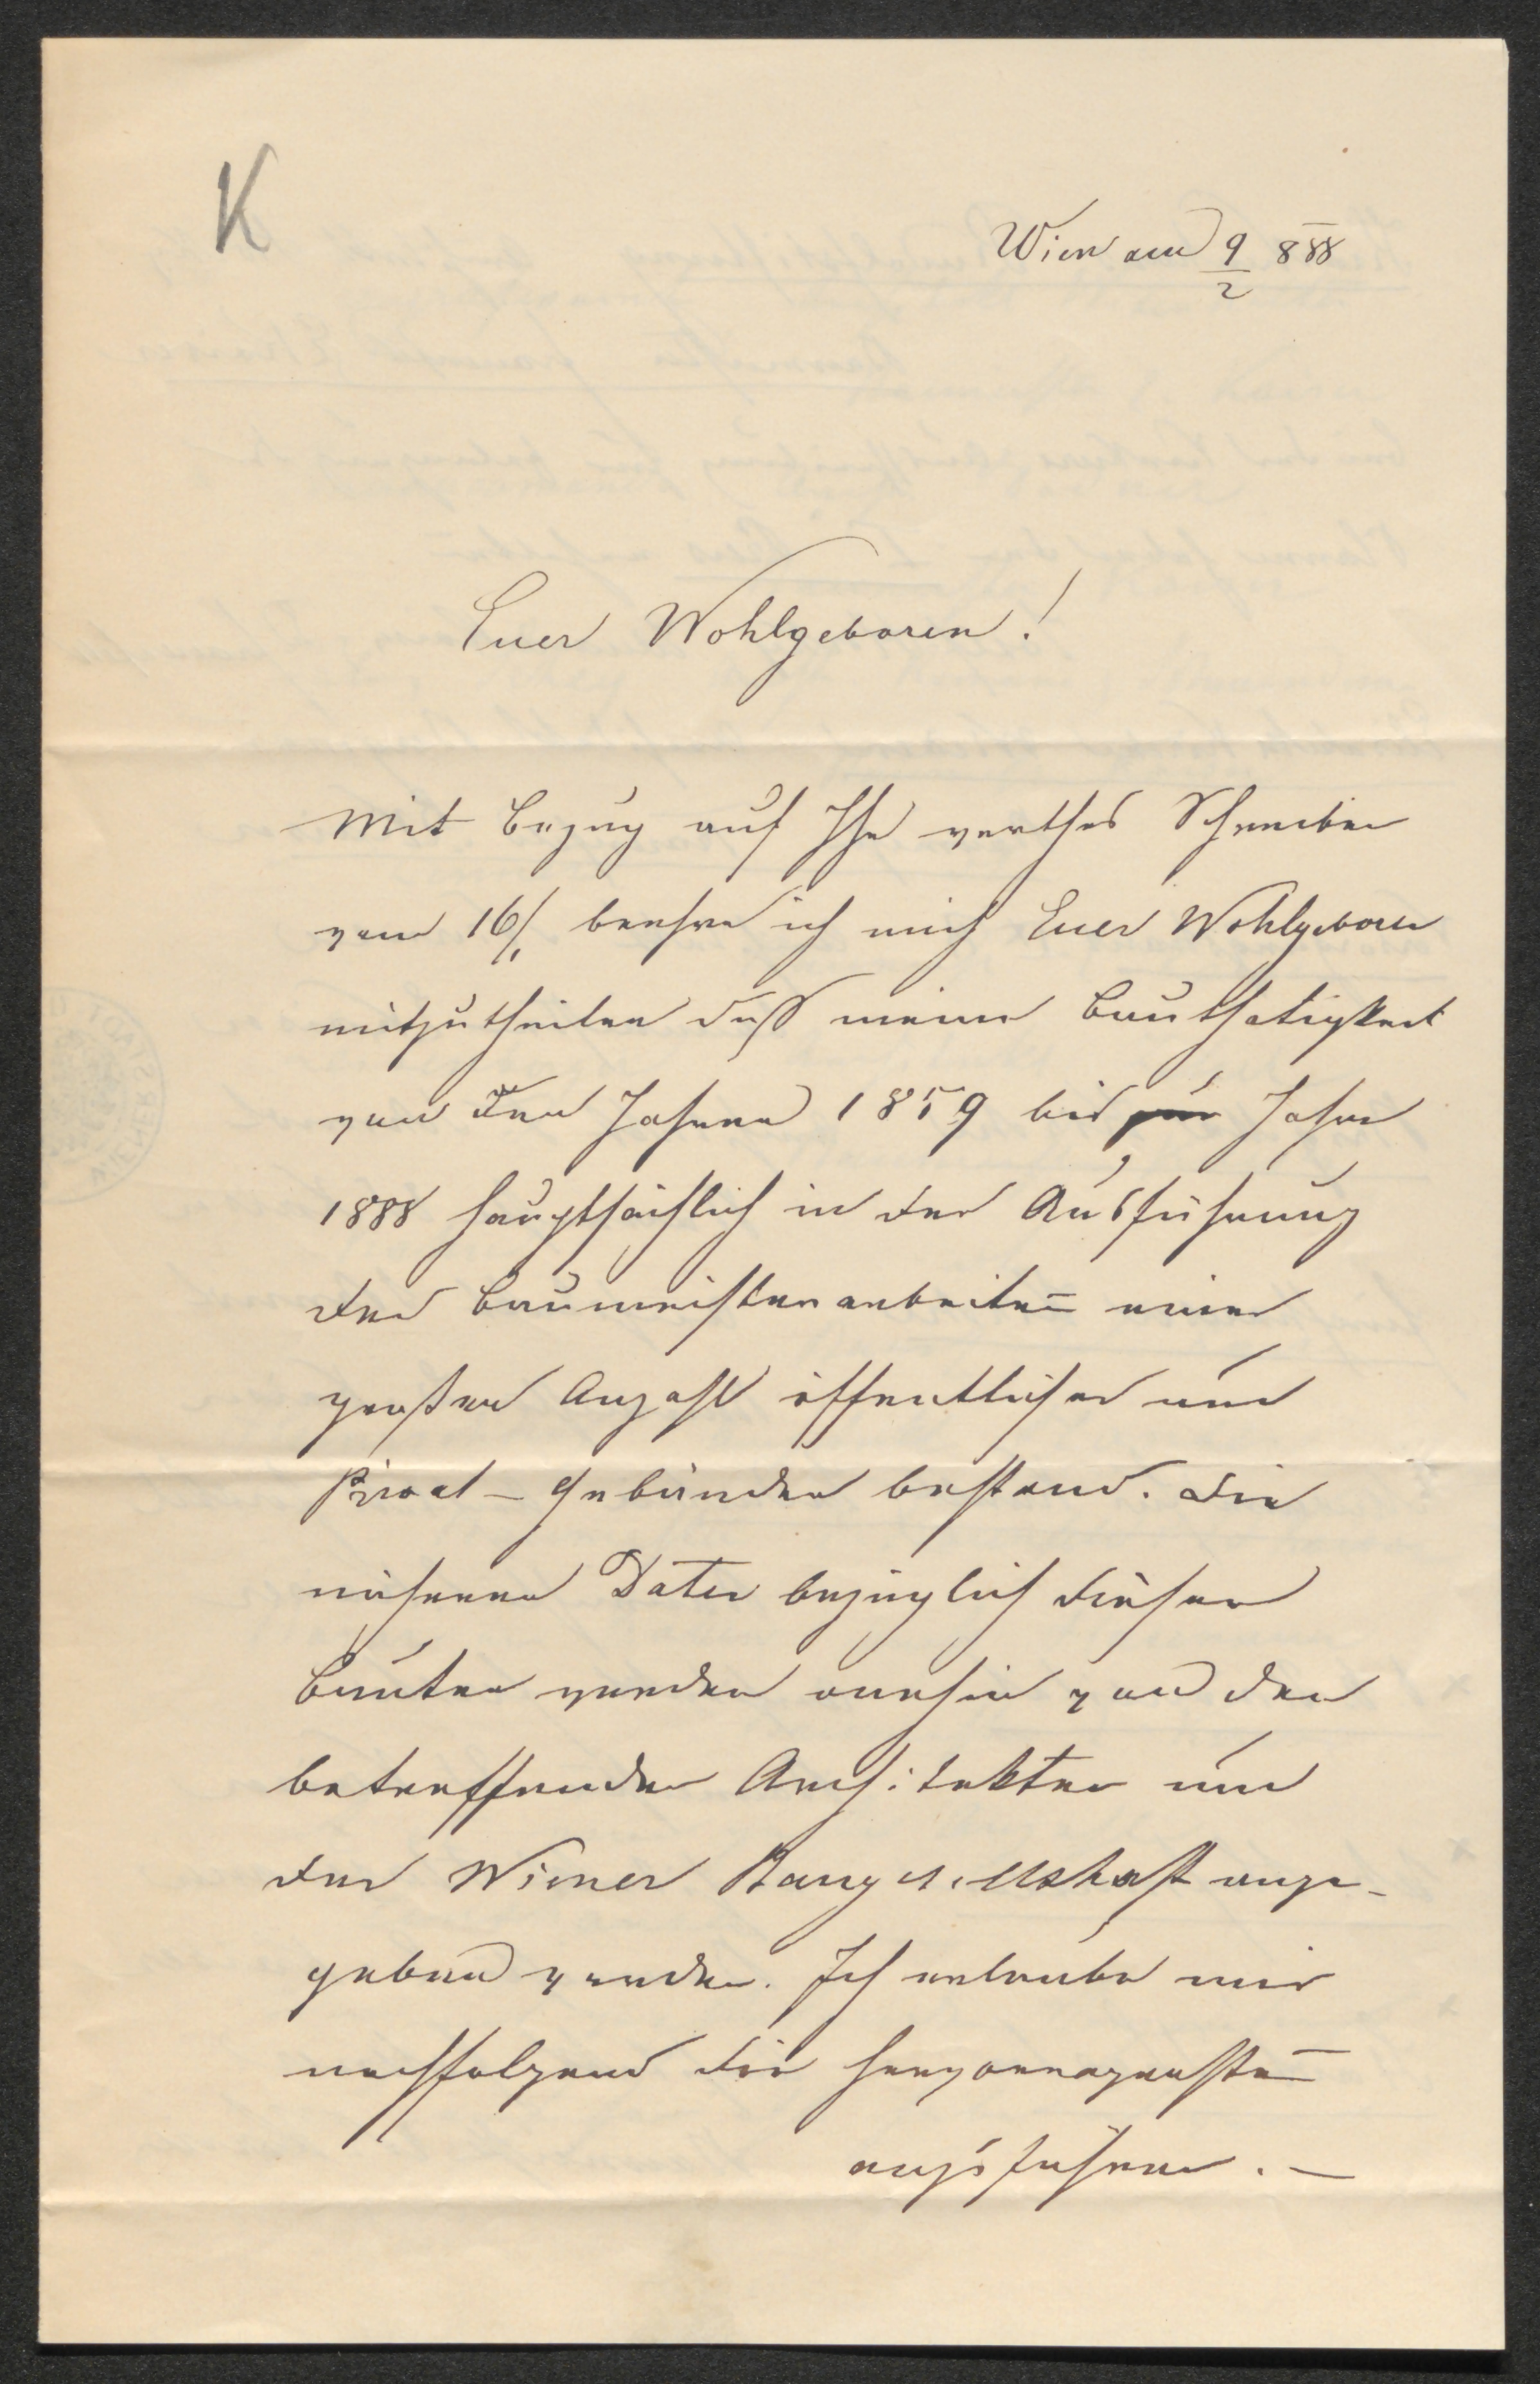 K
Wien am 9/2 888
Euer Wohlgeboren!
Mit Bezug auf Ihr werthes Schreiben
vom 16/1 beehre ich mich Euer Wohlgeboren
mitzutheilen daß meine Bauthätigkeit
von den Jahren 1859 bis zur Jahre
1888 hauptsächlich in der Ausführung
der Baumeisterarbeiten einer
großen Anzahl öffentlicher und
Privat-Gebäuden bestand. Die
näheren Daten bezüglich dieser
Bauten werden ohnehin von den
betreffenden Architekten und
der Wiener Baugesellschaft ange-
geben werden. Ich erlaube mir
nachfolgend die hervorragensten
anzuführen.—